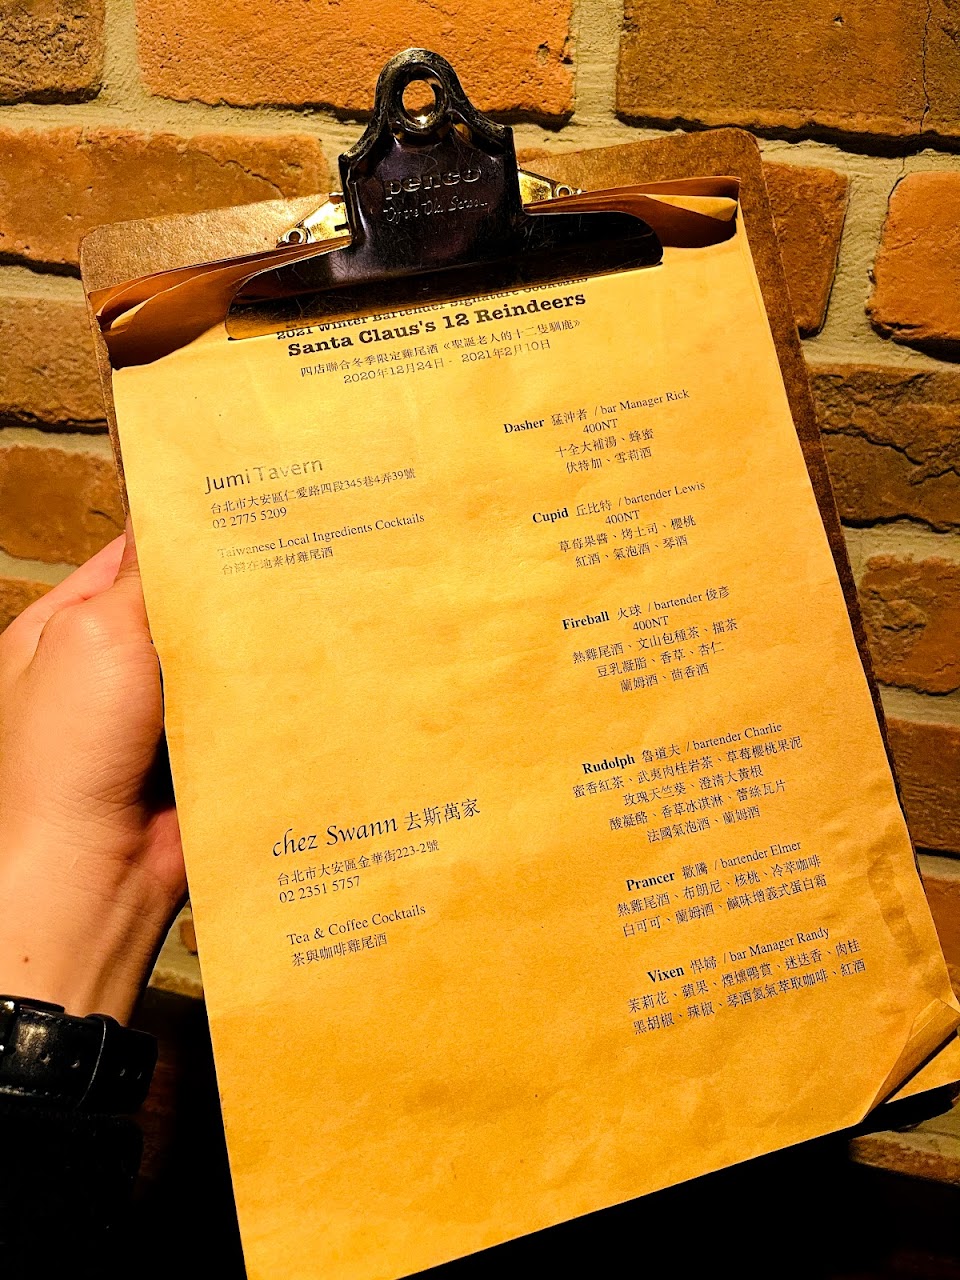 penco
2021 Winter Bartender Signature Cocktails
Santa Claus's 12 Reindeers
四店聯合冬季限定雞尾酒《聖誕老人的十二隻馴鹿》
2020年12月24日 - 2021年2月10日
Jumi Tavern
台北市大安區仁愛路四段345巷4弄39號
02 2775 5209
Taiwanese Local Ingredients Cocktails
台灣在地素材雞尾酒
Dasher 猛沖者 / bar Manager Rick
400NT
十全大補湯、蜂蜜
伏特加、雪莉酒
Cupid 丘比特 / bartender Lewis
400NT
草莓果醬、烤土司、櫻桃
紅酒、氣泡酒、琴酒
Fireball 火球 / bartender 俊彥
400NT
熱雞尾酒、文山包種茶、擂茶
豆乳凝脂、香草、杏仁
蘭姆酒、茴香酒
chez Swann 去斯萬家
台北市大安區金華街223-2號
02 2351 5757
Tea & Coffee Cocktails
茶與咖啡雞尾酒
Rudolph 魯道夫 / bartender Charlie
蜜香紅茶、武夷肉桂岩茶、草莓櫻桃果泥
玫瑰天竺葵、澄清大黃根
酸凝酪、香草冰淇淋、蕾絲瓦片
法國氣泡酒、蘭姆酒
Prancer 歡騰 / bartender Elmer
熱雞尾酒、布朗尼、核桃、冷萃咖啡
白可可、蘭姆酒、鹹味增義式蛋白霜
Vixen 悍婦 / bar Manager Randy
茉莉花、蘋果、煙燻鴨賞、迷迭香、肉桂
黑胡椒、辣椒、琴酒氮氣萃取咖啡、紅酒